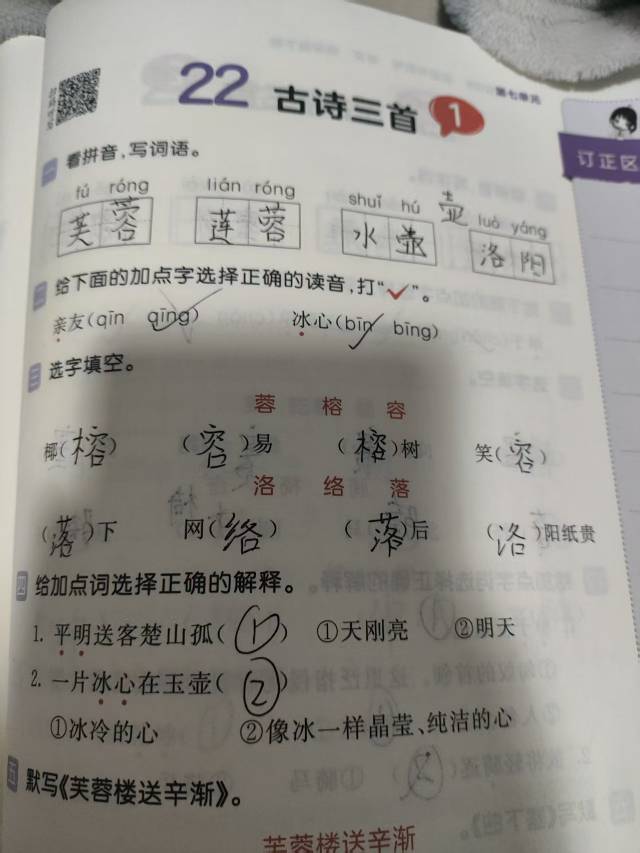 第七单元
22 古诗三首 1
订正区
一 看拼音,写词语。
fú róng lián róng shuǐ hú luò yáng
芙蓉 莲蓉 水壶 壶 洛阳
二 给下面的加点字选择正确的读音,打“✓”。
亲友(qīn qīng) 冰心(bīn bīng)
三 选字填空。
蓉 榕 容
椰(榕) (容)易 (榕)树 笑(容)
洛 络 落
(落)下 网(络) (落)后 (洛)阳纸贵
四 给加点词选择正确的解释。
1. 平明送客楚山孤(①) ①天刚亮 ②明天
2. 一片冰心在玉壶(②)
①冰冷的心 ②像冰一样晶莹、纯洁的心
五 默写《芙蓉楼送辛渐》。
芙蓉楼送辛渐